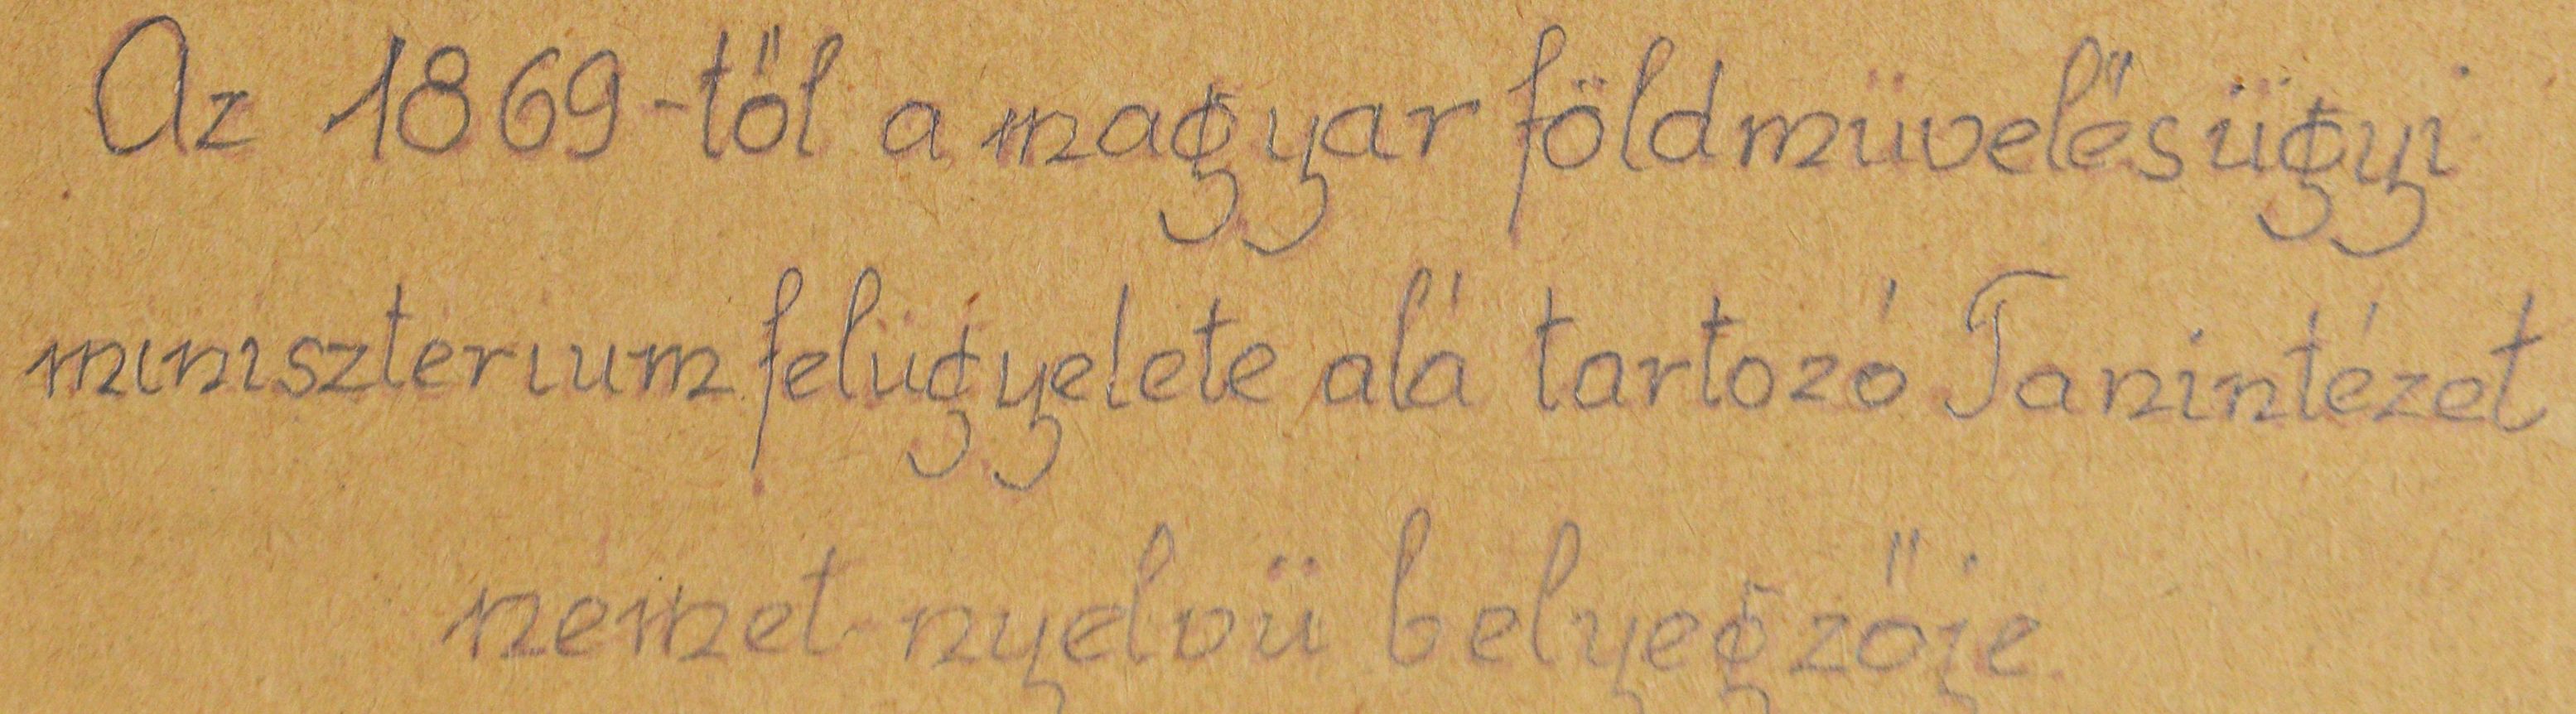 Az 1869-től a magyar földmüvelésügyi
miniszterium felügyelete alá tartozó Tanintézet
nemet nyelvü belyegzője.